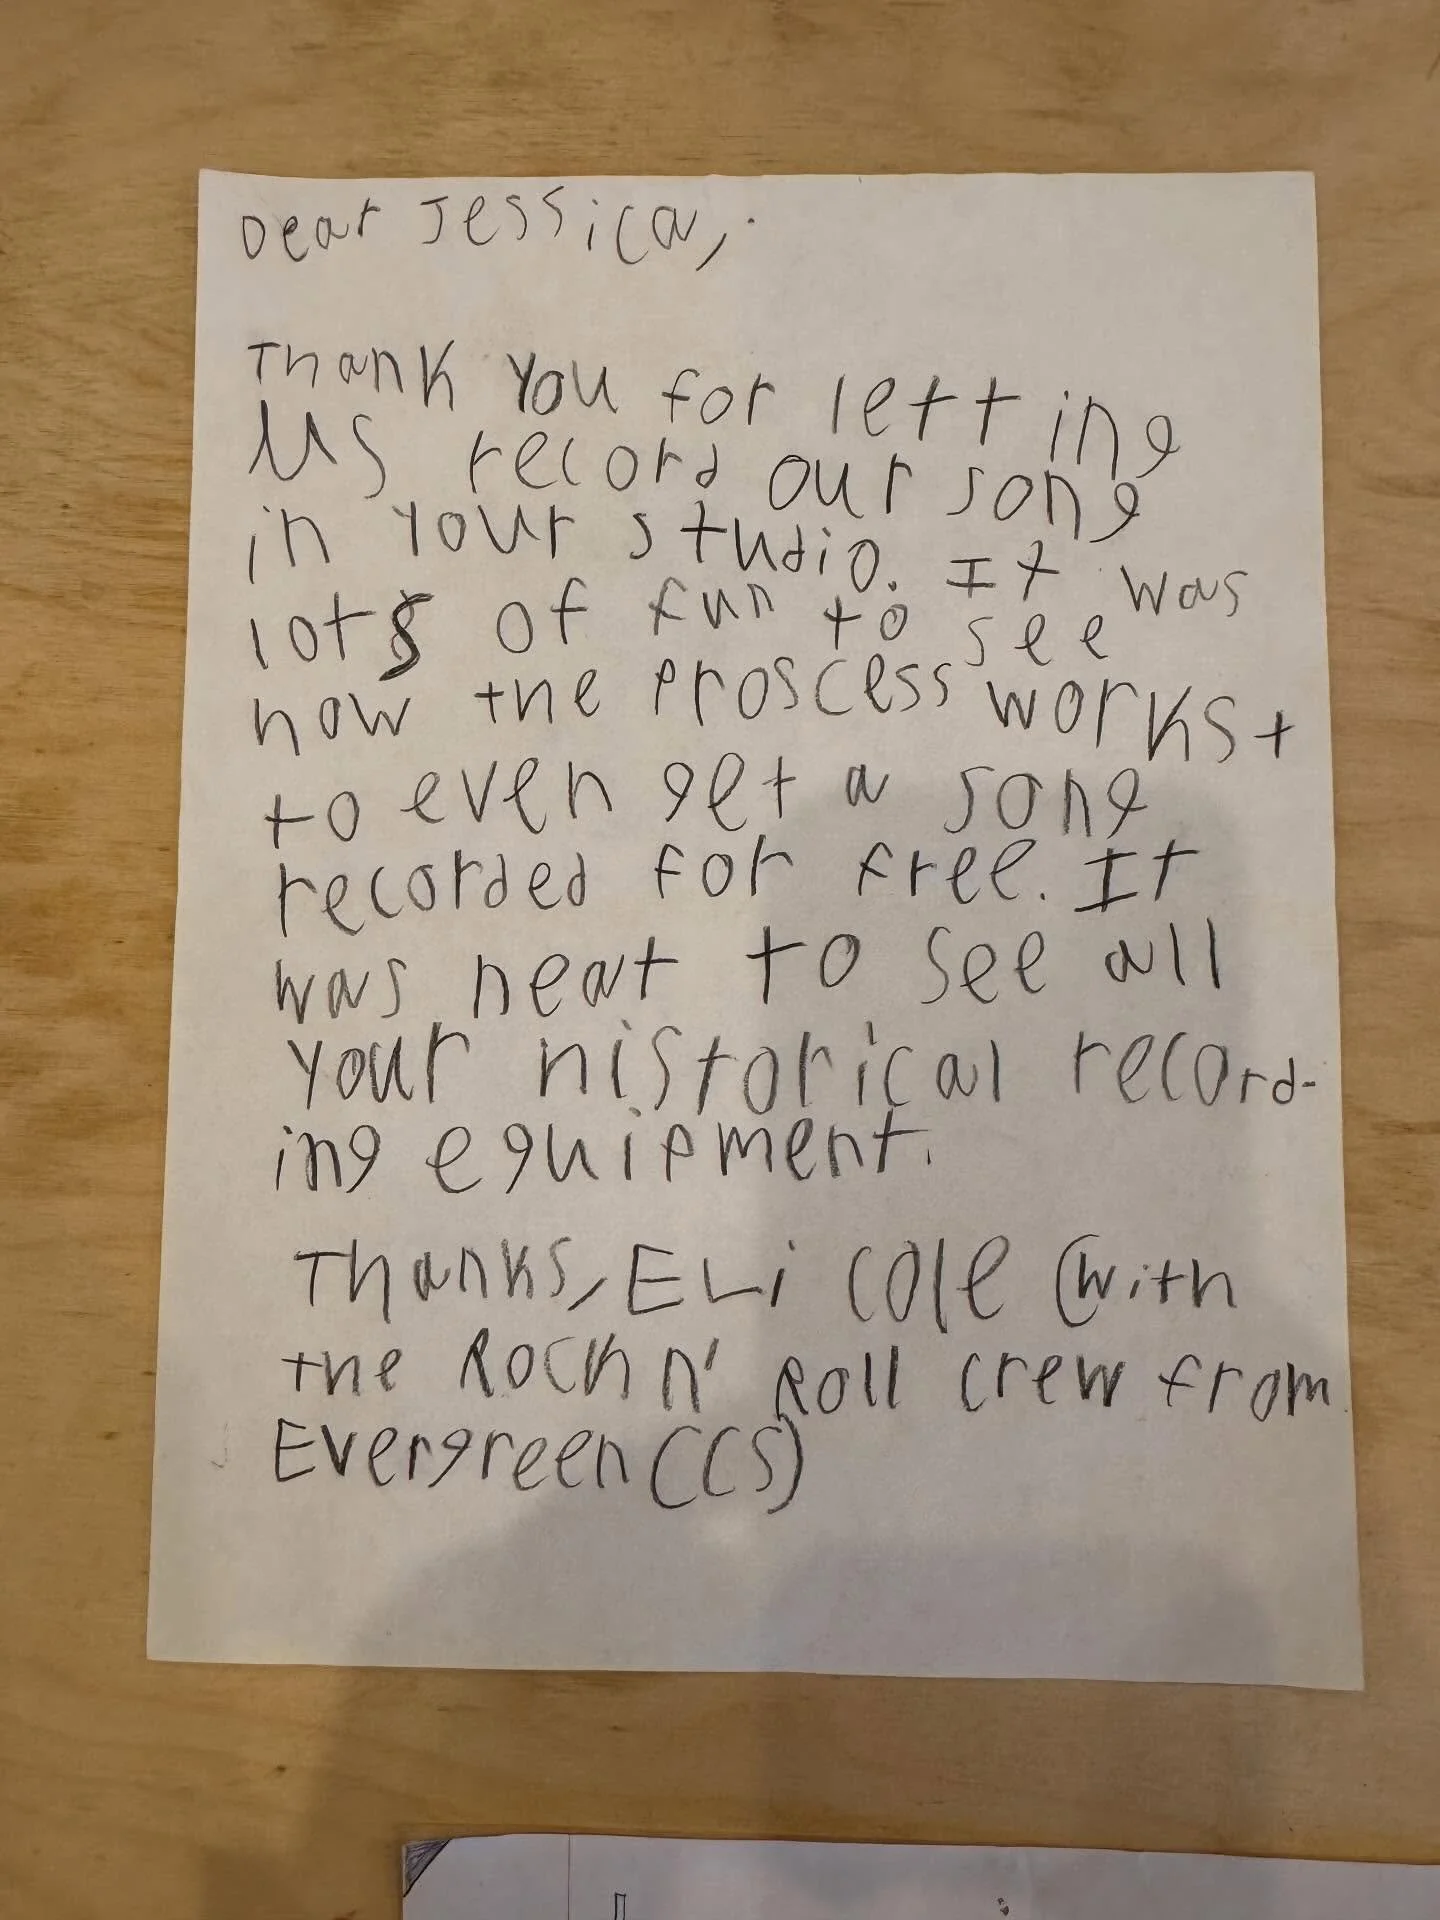 Dear Jessica,
Thank you for letting
us record our song
in your studio. It was
lots of fun to see
how the proscess works +
to even get a song
recorded for free. It
was neat to see all
your historical record-
ing equipment.
Thanks, ELi Cole (with
the Rock n' Roll crew from
Evergreen (CCS)